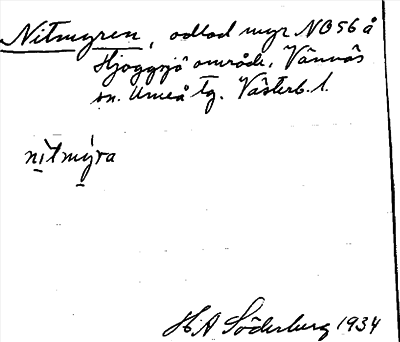 Nitmyren, odlad myr NB56 å
Hjoggsjö område, Vännäs
sn. Umeå tg. Västerb. l.
nìtmýra
H A Söderberg 1934